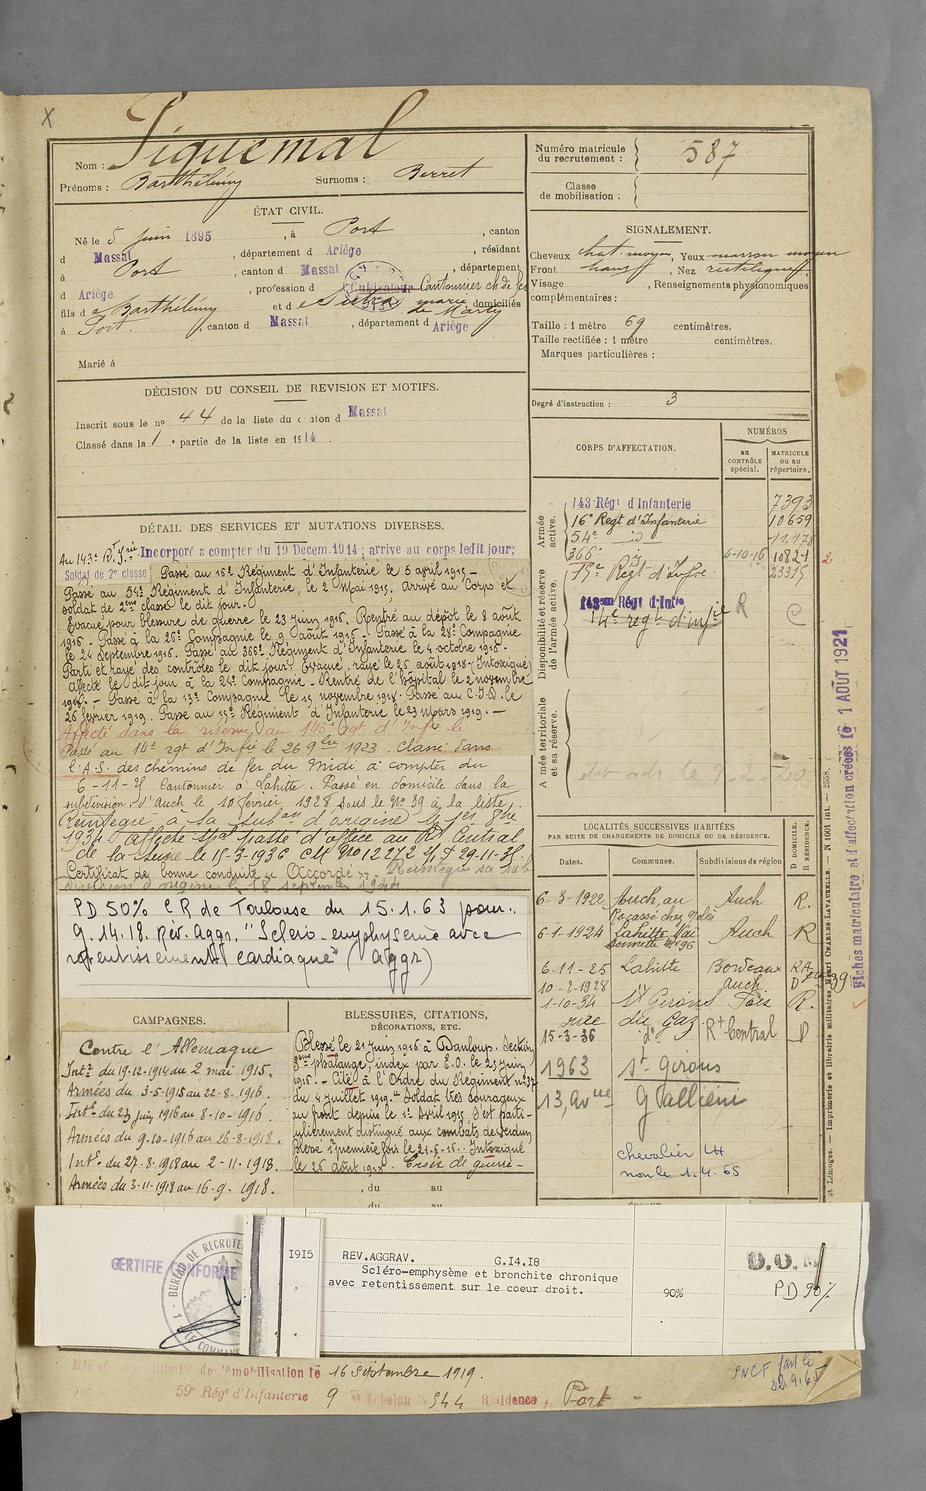 X
Nom : Piquemal
Prénoms : Barthélémy Surnoms : Berret
Numéro matricule du recrutement : 587
Classe de mobilisation :
ÉTAT CIVIL.
Né le 5 juin 1895, à Port, canton
d Massat, département d Ariège, résidant
à Port, canton d Massat, département
d Ariège, profession d Cultivateur Cantonnier ch de fer
fils d e Barthélémy et d e marie domiciliés
à Port, canton d Massat, département d Ariège
Marié à
SIGNALEMENT.
Cheveux chat. moyen, Yeux marron moyen
Front, Nez rectiligne
Visage, Renseignements physionomiques
complémentaires :
Taille : 1 mètre 69 centimètres.
Taille rectifiée : 1 mètre centimètres.
Marques particulières :
Degré d'instruction : 3
DÉCISION DU CONSEIL DE REVISION ET MOTIFS.
Inscrit sous le no 44 de la liste du canton d Massat
Classé dans la 1 e partie de la liste en 1914.
CORPS D'AFFECTATION.
NUMÉROS
AU CONTRÔLE spécial.
MATRICULE ou au répertoire.
Armée active.
143 Régt d'Infanterie 7393
16e Regt d'Infanterie 10659
54e id 11.178
366e 6-10-16 10821
15e Regt d'Infie 23315
Disponibilité et réserve de l'armée active.
143eme Régt d'Infie R
14e regt d'infie C
Armée territoriale et sa réserve.
DÉTAIL DES SERVICES ET MUTATIONS DIVERSES.
Au 143e Rt Ifrie Incorporé à compter du 19 Decem.1914 ; arrive au corps ledit jour;
Soldat de 2e classe Passé au 16e Régiment d'Infanterie le 5 avril 1915 -
Passé au 54e Régiment d'Infanterie, le 2 Mai 1915. Arrivé au Corps et
soldat de 2eme classe le dit jour.
Evacué pour blessure de guerre le 23 juin 1916. Rentré au dépôt le 8 août
1916. Passé à la 26e Compagnie le 9 août 1916 - Passé à la 28e Compagnie
le 24 Septembre 1916. Passé au 366e Régiment d'Infanterie le 4 octobre 1916.
Parti et rayé des contrôles le dit jour. Evacué, rayé le 26 août 1918 - Intoxiqué
Affecté le dit jour à la 24e Compagnie - Rentré de l'hôpital le 2 novembre
1918. - Passé à la 13e Compagnie le 15 novembre 1918. Passé au C.I.D. le
26 février 1919. Passé au 15e Régiment d'Infanterie le 23 Mars 1919. -
Affecté dans la réserve au 143e Rgt d'Infie le
Passé au 14e rgt d'Infie le 26 9bre 1923. Classé dans
l'A.S. des chemins de fer du Midi à compter du
6-11-25 Cantonnier à Lahitte. Passé en domicile dans la
subdivision d'Auch le 10 février 1928 sous le No 39 de la liste.
Réintégré à sa subdon d'origine le 1er 8bre
1934. Affecté spal passé d'office au Rt Central
de la Seine le 15-3-1936 CM No 12272 du 29-11-35.
Certificat de bonne conduite "Accordé". Réintégré sa sub
division d'origine le 18 septembre 1944
PD 50% CR de Toulouse du 15.1.63 pour:
G.14.18. Rév. Aggr. "Scléro-emphysème avec
retentissement cardiaque" (aggr)
LOCALITÉS SUCCESSIVES HABITÉES
PAR SUITE DE CHANGEMENTS DE DOMICILE OU DE RÉSIDENCE.
D DOMICILE. R RÉSIDENCE.
Dates. Communes. Subdivisions de région
6-3-1922 Auch, au Auch R.
6-1-1924 Lahitte Mai- Auch R
sonnette No 96
6.11-25 Lahitte Bordeaux RA
10-2-1928 " Auch D 39
1-10-34 St Girons Foix R.
rue du Gaz
15-3-36 do Rt Central D
1963 St Girons
13, Avnue Galliéni
chevalier LH
non le 1.4.65
CAMPAGNES.
Contre l'Allemagne
Intre du 19-12-1914 au 2 mai 1915.
Armées du 3-5-1915 au 22-6-1916.
Intre du 23 juin 1916 au 8-10-1916.
Armées du 9-10-1916 au 26-8-1918.
Intre du 27-8-1918 au 2-11-1918.
Armées du 3-11-1918 au 16-9-1918.
BLESSURES, CITATIONS, DÉCORATIONS, ETC.
Blessé le 21 juin 1916 à Damloup. Section
3eme phalange, index par E.O. le 21 juin
1916. - Cité à l'Ordre du Régiment no 37
du 4 juillet 1919. "Soldat très courageux
au front depuis le 1er Avril 1915. S'est parti-
culièrement distingué aux combats de Verdun
Blessé 1 première fois le 21-6-16. Intoxiqué
le 26 août 1918. Croix de guerre -
, du au
CERTIFIÉ CONFORME
BUREAU DE RECRUTE
LE COMMAN
1915
REV.AGGRAV. G.I4.I8
Scléro-emphysème et bronchite chronique
avec retentissement sur le coeur droit.
90%
D.O.M
PD 90%
Mis en congé illimité de démobilisation le 16 Septembre 1919.
59e Régt d'Infanterie 9 e Echelon No 544 Résidence : Port -
SNCF fait le
22.9.65
Fiches matriculaire et d'affectation créées le 1 AOÛT 1921
et Limoges. — Imprimerie et librairie militaires Henri CHARLES-LAVAUZELLE. — N 1001 int. — 2558.